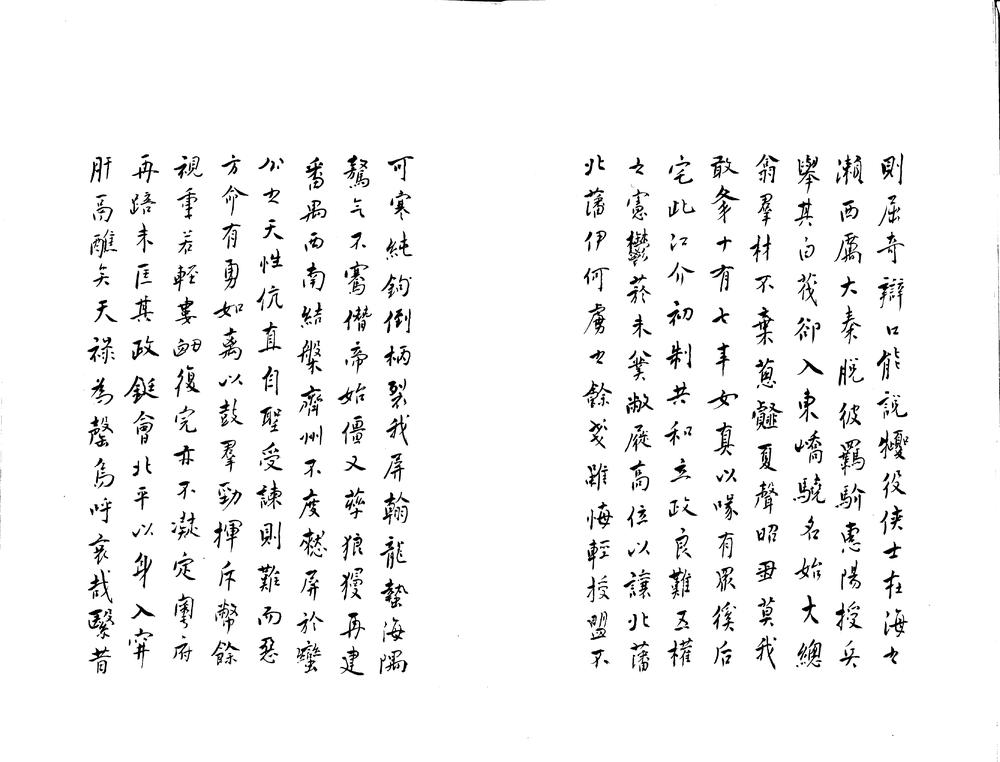 則屈奇辯口能說役俠士在海之
瀕西厲大秦脫彼羈馽惠陽授兵
舉其白茷卻入東嶠驍名始大總
翕羣材不棄蔥䪥夏聲昭莫我
敢夆十有七年女真以喙有眾徯后
宅此江介初制共和立政良難互權
之憲鬱菸未糞敝屣高位以讓北藩
北藩伊何虜之餘戔雖悔輕授盟不
可寒純鉤倒柄裂我屏翰龍蟄海隅
驁气不騫僭帝始僵又孽狼獌再建
番禺西南結槃齊州不度憖屏於蠻
公之天性伉直自聖受諫則難而惡
方命有勇如离以鼓羣勁揮斥幣餘
視重若輕婁衄復完亦不凝定粵府
再踣未匡其政鋌會北平以身入穽
肝鬲醮矣天祿為罄烏呼哀哉繄昔